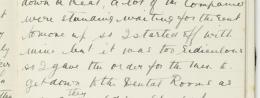 down or near, a lot of the Companies
were standing waiting for the Rent
to come up so I started off with
mine but it was too ridiculous
so I gave the order for the men to
get down to the Dental Rooms as
they